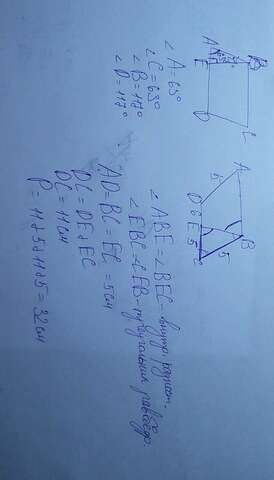 A
B
E
D
C
∠A=63°
∠C=63°
∠B=117°
∠D=117°
A
B
5
D
6
E
5
5
C
∠ABE=∠BEC-внутр. накрест.
∠EBC=∠CEB-треугольник равнобедр.
AD=BC=EC=5см
DC=DE+EC
DC=11см
P=11+5+11+5=32см